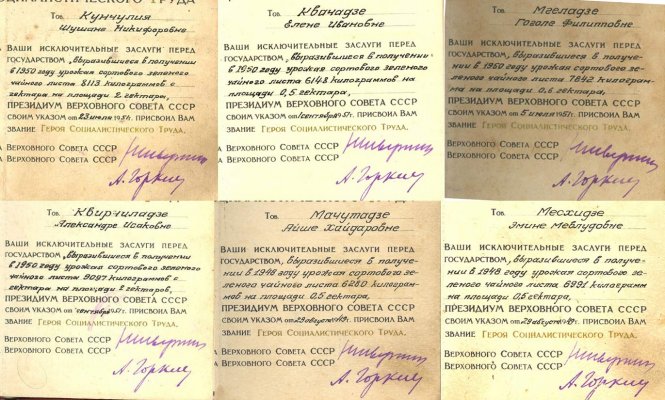 ЦИАЛИСТИЧЕСКОГО ТРУДА
Тов. Кунчулия
Шушане Никифоровне
ВАШИ ИСКЛЮЧИТЕЛЬНЫЕ ЗАСЛУГИ ПЕРЕД
ГОСУДАРСТВОМ, выразившиеся в получении
в 1950 году урожая сортового зеленого
чайного листа 8113 килограммов с
гектара на площади 2 гектара,
ПРЕЗИДИУМ ВЕРХОВНОГО СОВЕТА СССР
СВОИМ УКАЗОМ от 23 июля 1951г. ПРИСВОИЛ ВАМ
ЗВАНИЕ ГЕРОЯ СОЦИАЛИСТИЧЕСКОГО ТРУДА.
А ВЕРХОВНОГО СОВЕТА СССР Шверник
А ВЕРХОВНОГО СОВЕТА СССР А. Горкин
Тов. Квачадзе
Елене Ивановне
ВАШИ ИСКЛЮЧИТЕЛЬНЫЕ ЗАСЛУГИ ПЕРЕД
ГОСУДАРСТВОМ, выразившиеся в получении
в 1950 году урожая сортового зеленого
чайного листа 6143 килограммов на
площади 0,5 гектара,
ПРЕЗИДИУМ ВЕРХОВНОГО СОВЕТА СССР
СВОИМ УКАЗОМ от 1 сентября 51г. ПРИСВОИЛ ВАМ
ЗВАНИЕ ГЕРОЯ СОЦИАЛИСТИЧЕСКОГО ТРУДА.
А ВЕРХОВНОГО СОВЕТА СССР Шверник
А ВЕРХОВНОГО СОВЕТА СССР А. Горкин
Тов. Мгеладзе
Гоголе Филипповне
ВАШИ ИСКЛЮЧИТЕЛЬНЫЕ ЗАСЛУГИ ПЕРЕД
ГОСУДАРСТВОМ, выразившиеся в получе-
нии в 1950 году урожая сортового зе-
леного чайного листа 7842 килограм-
ма на площади 0,6 гектара,
ПРЕЗИДИУМ ВЕРХОВНОГО СОВЕТА СССР
СВОИМ УКАЗОМ от 5 июля 1951г. ПРИСВОИЛ ВАМ
ЗВАНИЕ ГЕРОЯ СОЦИАЛИСТИЧЕСКОГО ТРУДА.
ВЕРХОВНОГО СОВЕТА СССР Шверник
ВЕРХОВНОГО СОВЕТА СССР А. Горкин
Тов. Квирчиладзе
Александре Исаковне
ВАШИ ИСКЛЮЧИТЕЛЬНЫЕ ЗАСЛУГИ ПЕРЕД
ГОСУДАРСТВОМ, выразившиеся в получении
в 1950 году урожая сортового зеленого
чайного листа 9097 килограммов с
гектара на площади 2 гектаров,
ПРЕЗИДИУМ ВЕРХОВНОГО СОВЕТА СССР
СВОИМ УКАЗОМ от сентября 51г. ПРИСВОИЛ ВАМ
ЗВАНИЕ ГЕРОЯ СОЦИАЛИСТИЧЕСКОГО ТРУДА.
ВЕРХОВНОГО СОВЕТА СССР Шверник
ВЕРХОВНОГО СОВЕТА СССР А. Горкин
Тов. Мачутадзе
Айше Хайдаровне
ВАШИ ИСКЛЮЧИТЕЛЬНЫЕ ЗАСЛУГИ ПЕРЕД
ГОСУДАРСТВОМ, выразившиеся в получении
в 1948 году урожая сортового зеле-
ного чайного листа 6280 килограм-
мов на площади 0,5 гектара,
ПРЕЗИДИУМ ВЕРХОВНОГО СОВЕТА СССР
СВОИМ УКАЗОМ от 29 августа 49г. ПРИСВОИЛ ВАМ
ЗВАНИЕ ГЕРОЯ СОЦИАЛИСТИЧЕСКОГО ТРУДА.
А ВЕРХОВНОГО СОВЕТА СССР Шверник
А ВЕРХОВНОГО СОВЕТА СССР А. Горкин
Тов. Месхидзе
Эмине Меблудовне
ВАШИ ИСКЛЮЧИТЕЛЬНЫЕ ЗАСЛУГИ ПЕРЕД
ГОСУДАРСТВОМ, выразившиеся в получе-
нии в 1948 году урожая сортового зе-
леного чайного листа 6991 килограмм
на площади 0,5 гектара,
ПРЕЗИДИУМ ВЕРХОВНОГО СОВЕТА СССР
СВОИМ УКАЗОМ от 29 августа 49г. ПРИСВОИЛ ВАМ
ЗВАНИЕ ГЕРОЯ СОЦИАЛИСТИЧЕСКОГО ТРУДА.
ВЕРХОВНОГО СОВЕТА СССР Шверник
ВЕРХОВНОГО СОВЕТА СССР А. Горкин